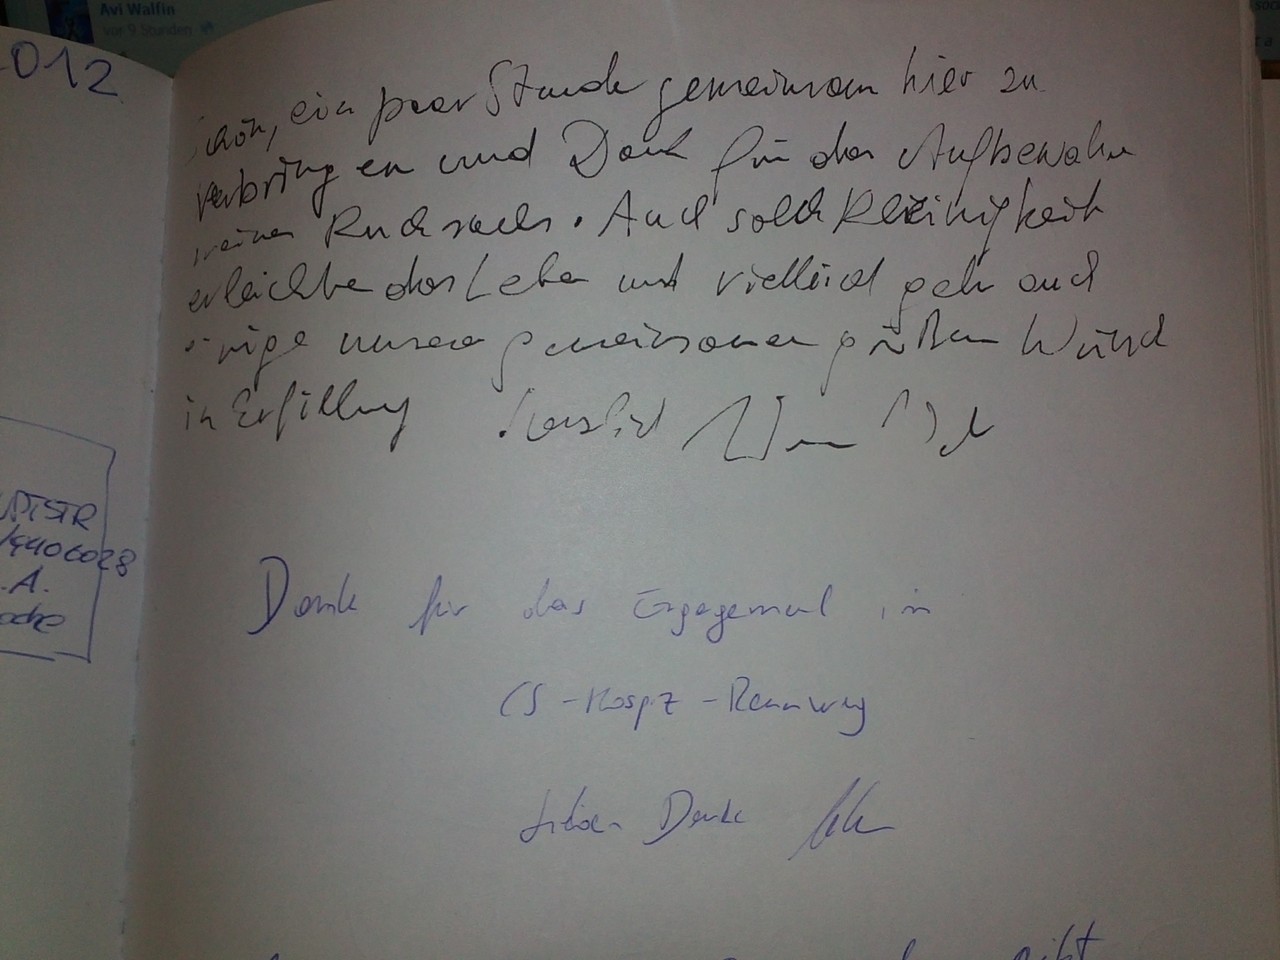 Avi Walfin
vor 9 Stunden
012
schön, ein paar Stunde gemeinsam hier zu
verbringen und Dank für das Aufbewahrn
meines Rucksacks. Auch solch Kleinigkeit
erleichte das Leben und vielleicht geht auch
einige unserer gemeinsamen größten Wünsch
in Erfüllung Herzlich
DTSTR
/4406028
.A.
Danke für das Engagement im
CS-Hospiz-Rennweg
Lieben Dank